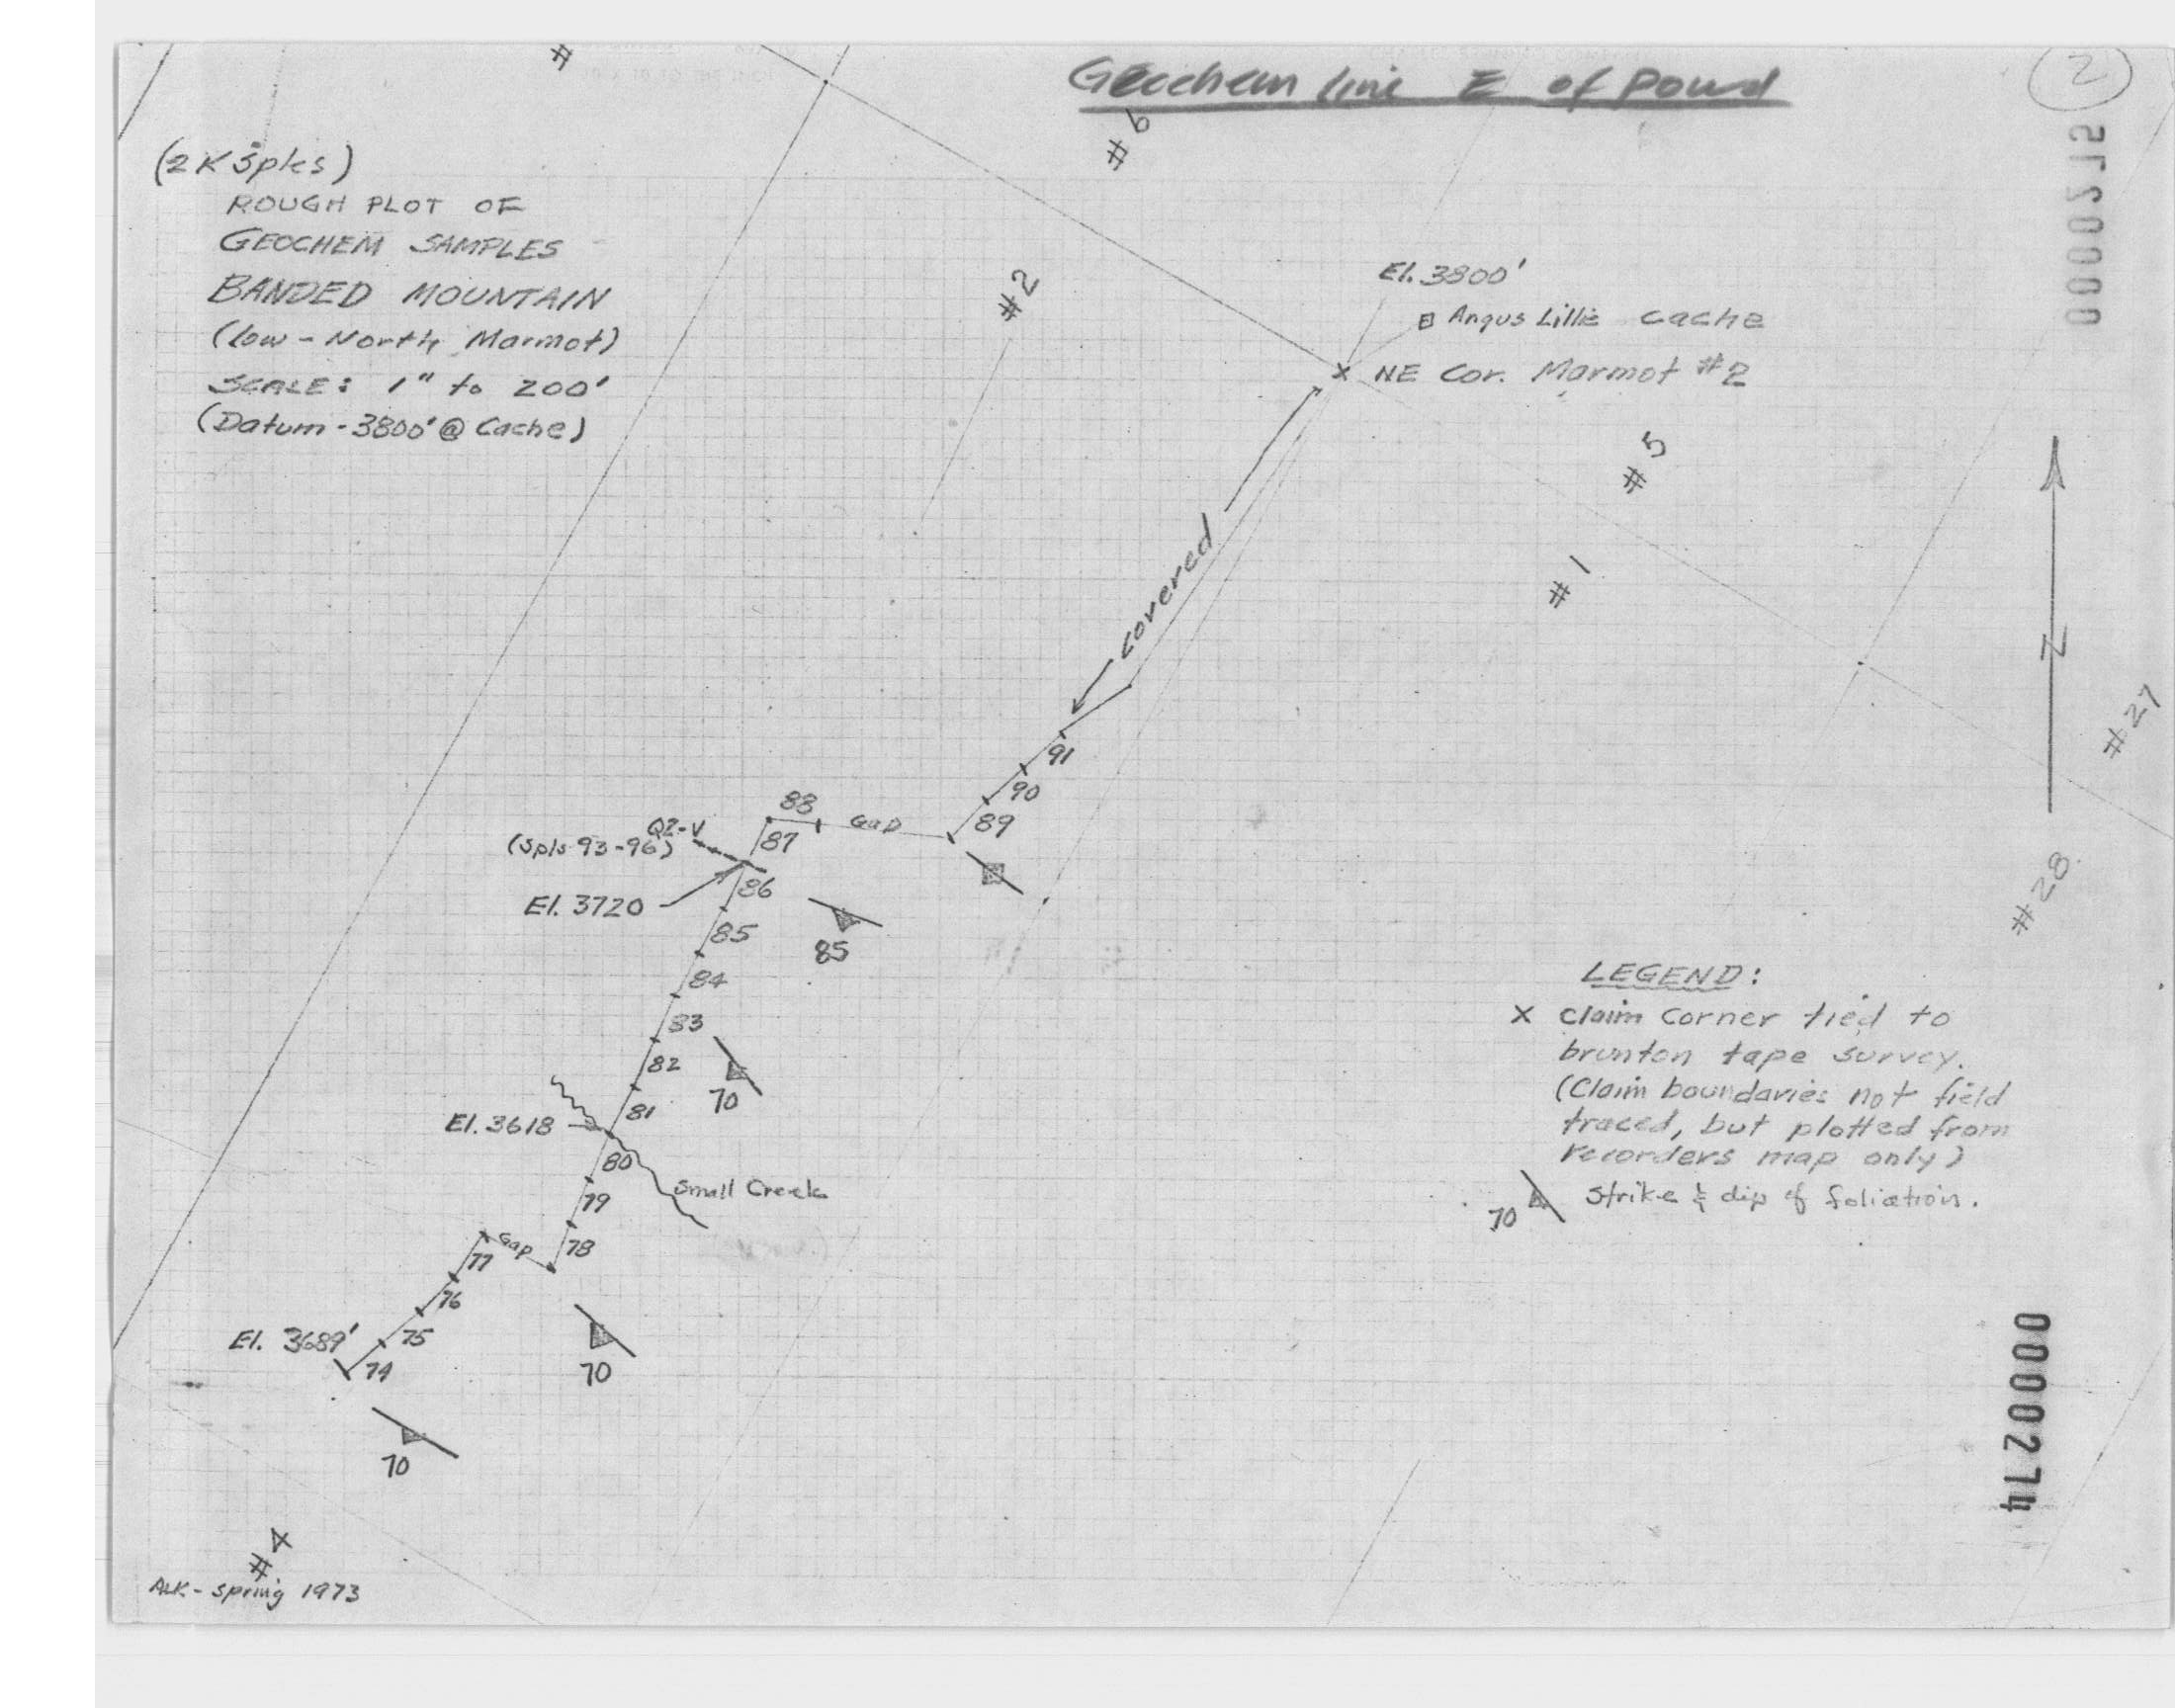 Geochem line E of Pound
2
0000275
#
#6
(2K Sples)
ROUGH PLOT OF
GEOCHEM SAMPLES
BANDED MOUNTAIN
(low - North Marmot)
SCALE: 1" to 200'
(Datum - 3800' @ Cache)
#2
El. 3800'
Angus Lillie Cache
X NE Cor. Marmot #2
#5
#1
covered
N
#27
#28
91
90
89
Gap
88
87
QZ-V
(Spls 93-96)
86
El. 3720
85
85
84
83
82
70
81
El. 3618
80
Small Creek
79
78
Gap
77
76
75
El. 3689'
74
70
70
LEGEND:
X Claim Corner tied to
brunton tape survey.
(Claim boundaries not field
traced, but plotted from
recorders map only)
70 Strike & dip of foliation.
0000274
#4
ALK - Spring 1973